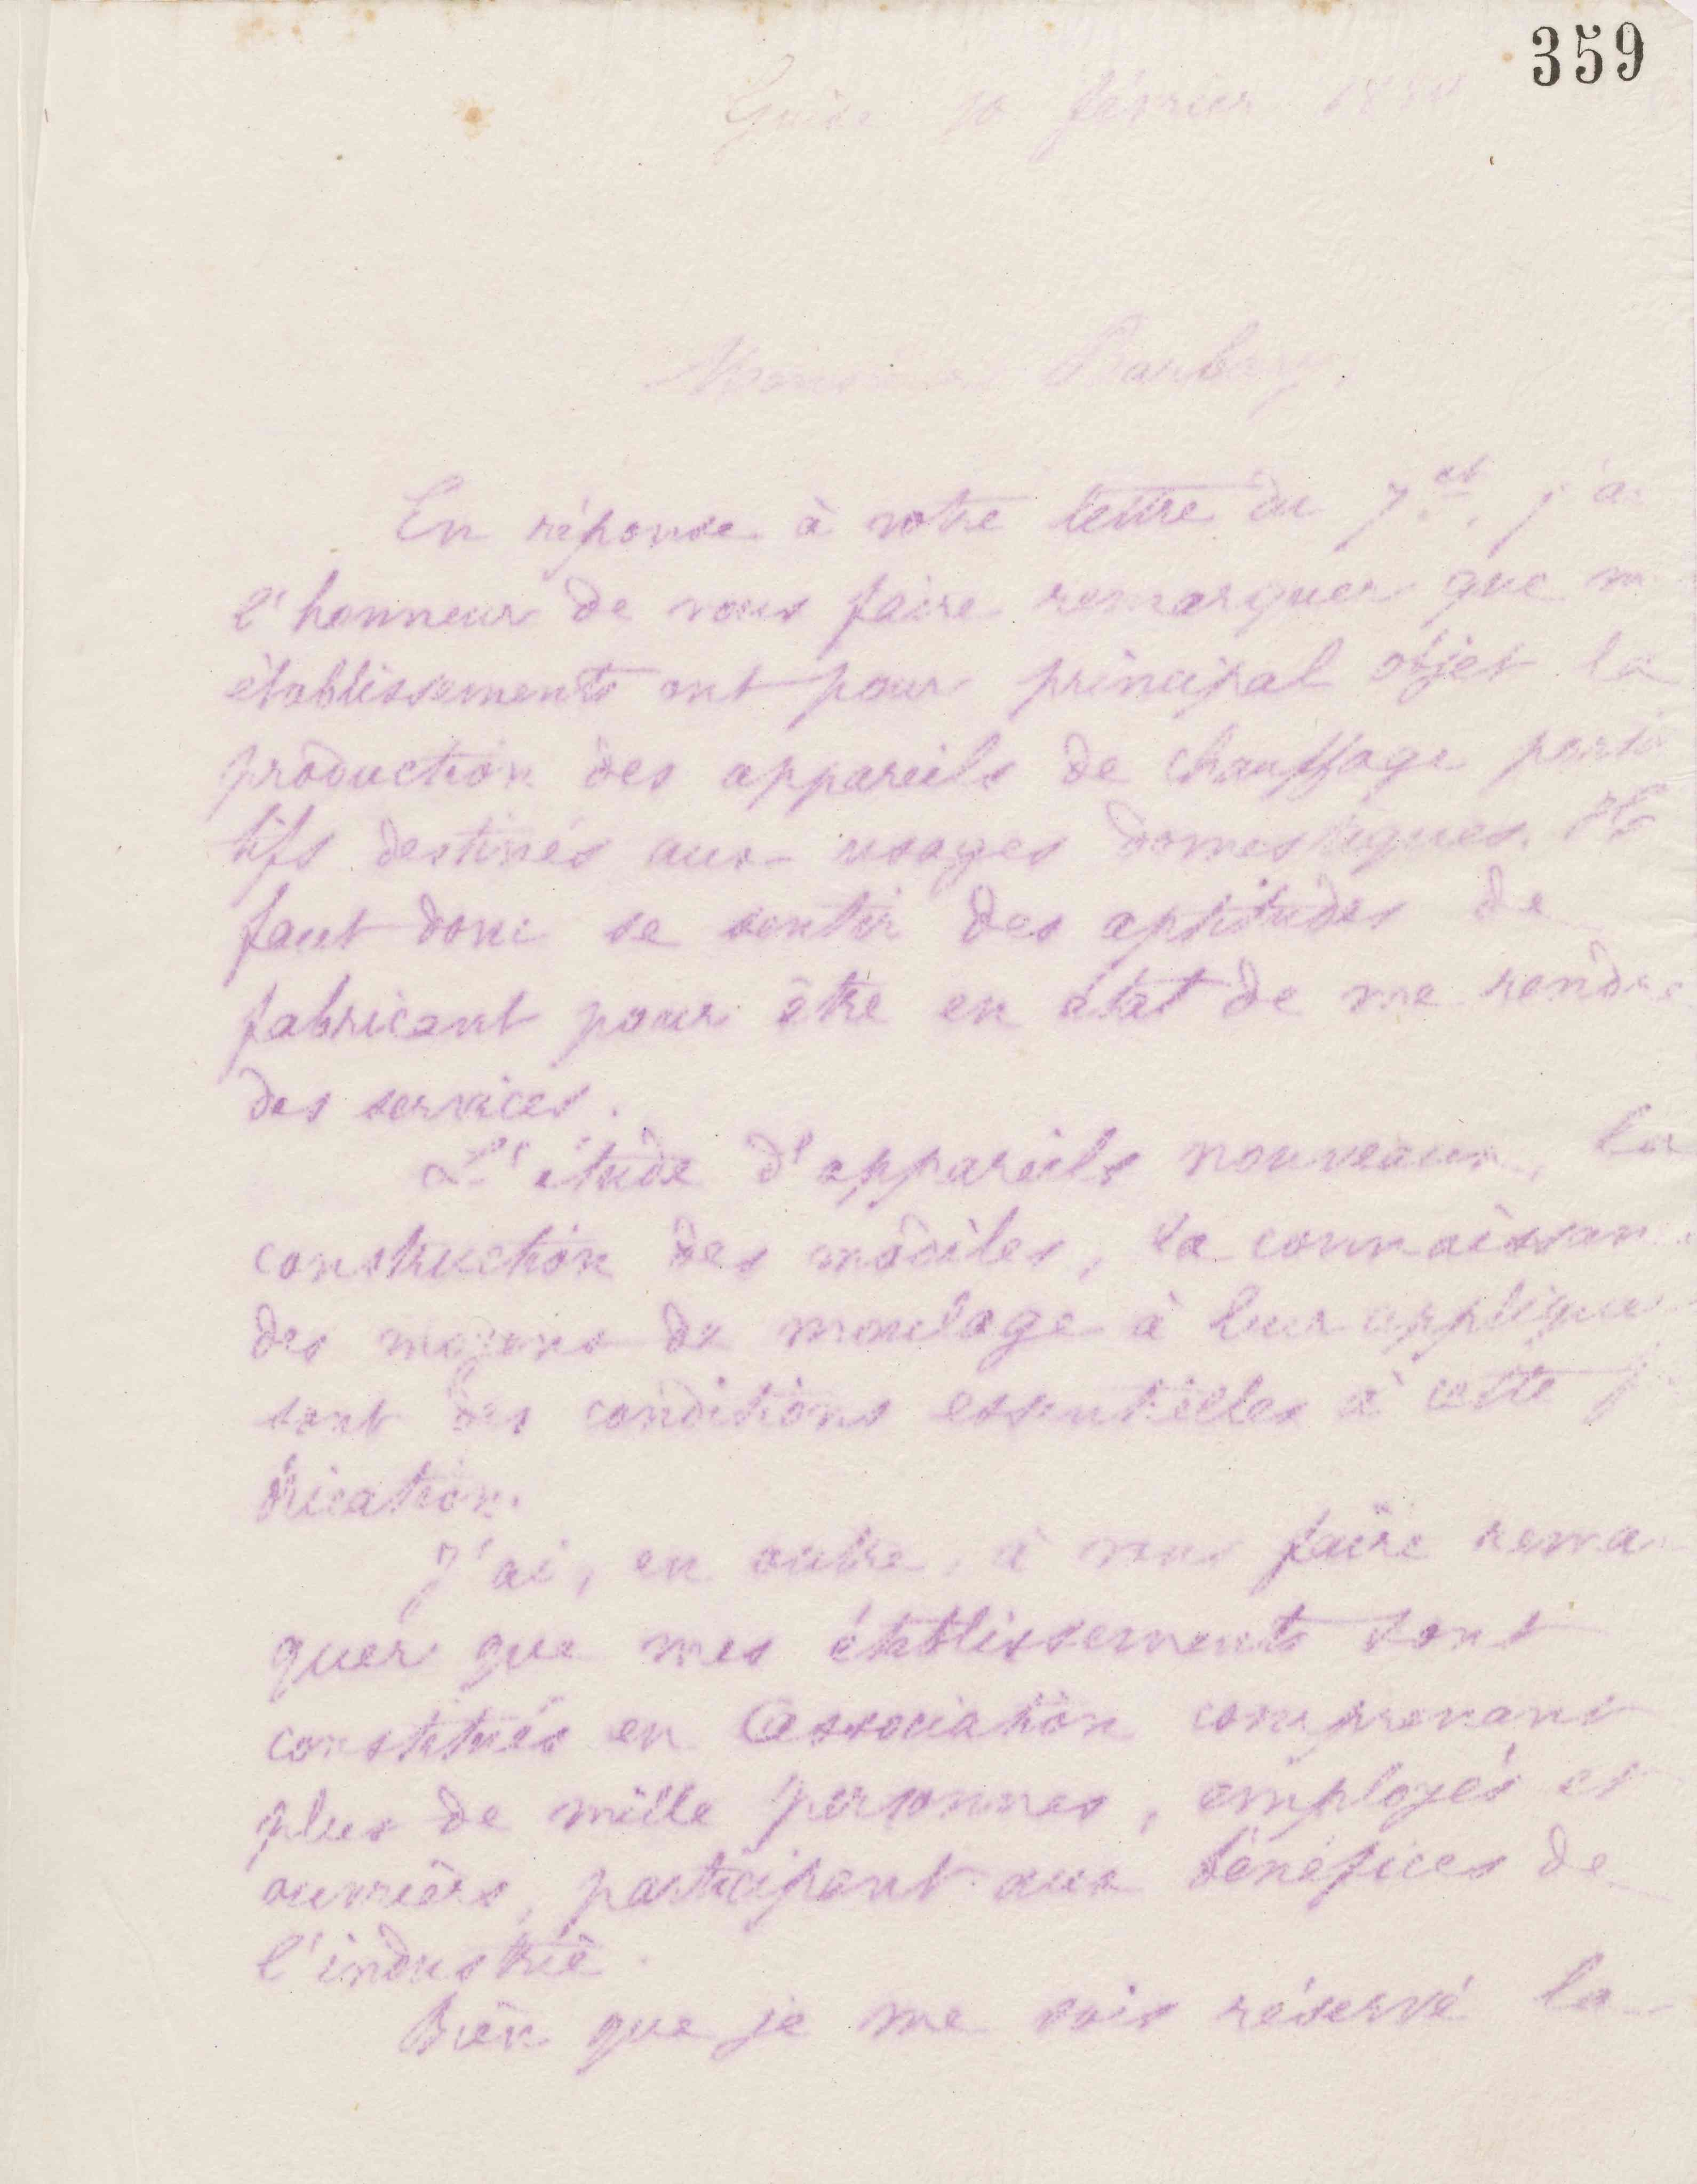 359
Guise 10 février 188
Monsieur Barbary
En réponse à votre lettre du 7 ct, j'ai
l'honneur de vous faire remarquer que m
établissements ont pour principal objet la
production des appareils de chauffage porta
tifs destinés aux usages domestiques. Il
faut donc se sentir des aptitudes de
fabricant pour être en état de me rendre
des services.
L'étude d'appareils nouveaux, la
construction des modèles, la connaissan
des moyens de moulage à leur applique
sont des conditions essentielles à cette f
brication.
J'ai, en outre, à vous faire remar
quer que mes établissements sont
constitués en Association comprenant
plus de mille personnes, employés et
ouvriers, participant aux bénéfices de
l'industrie.
Bien que je me sois réservé la